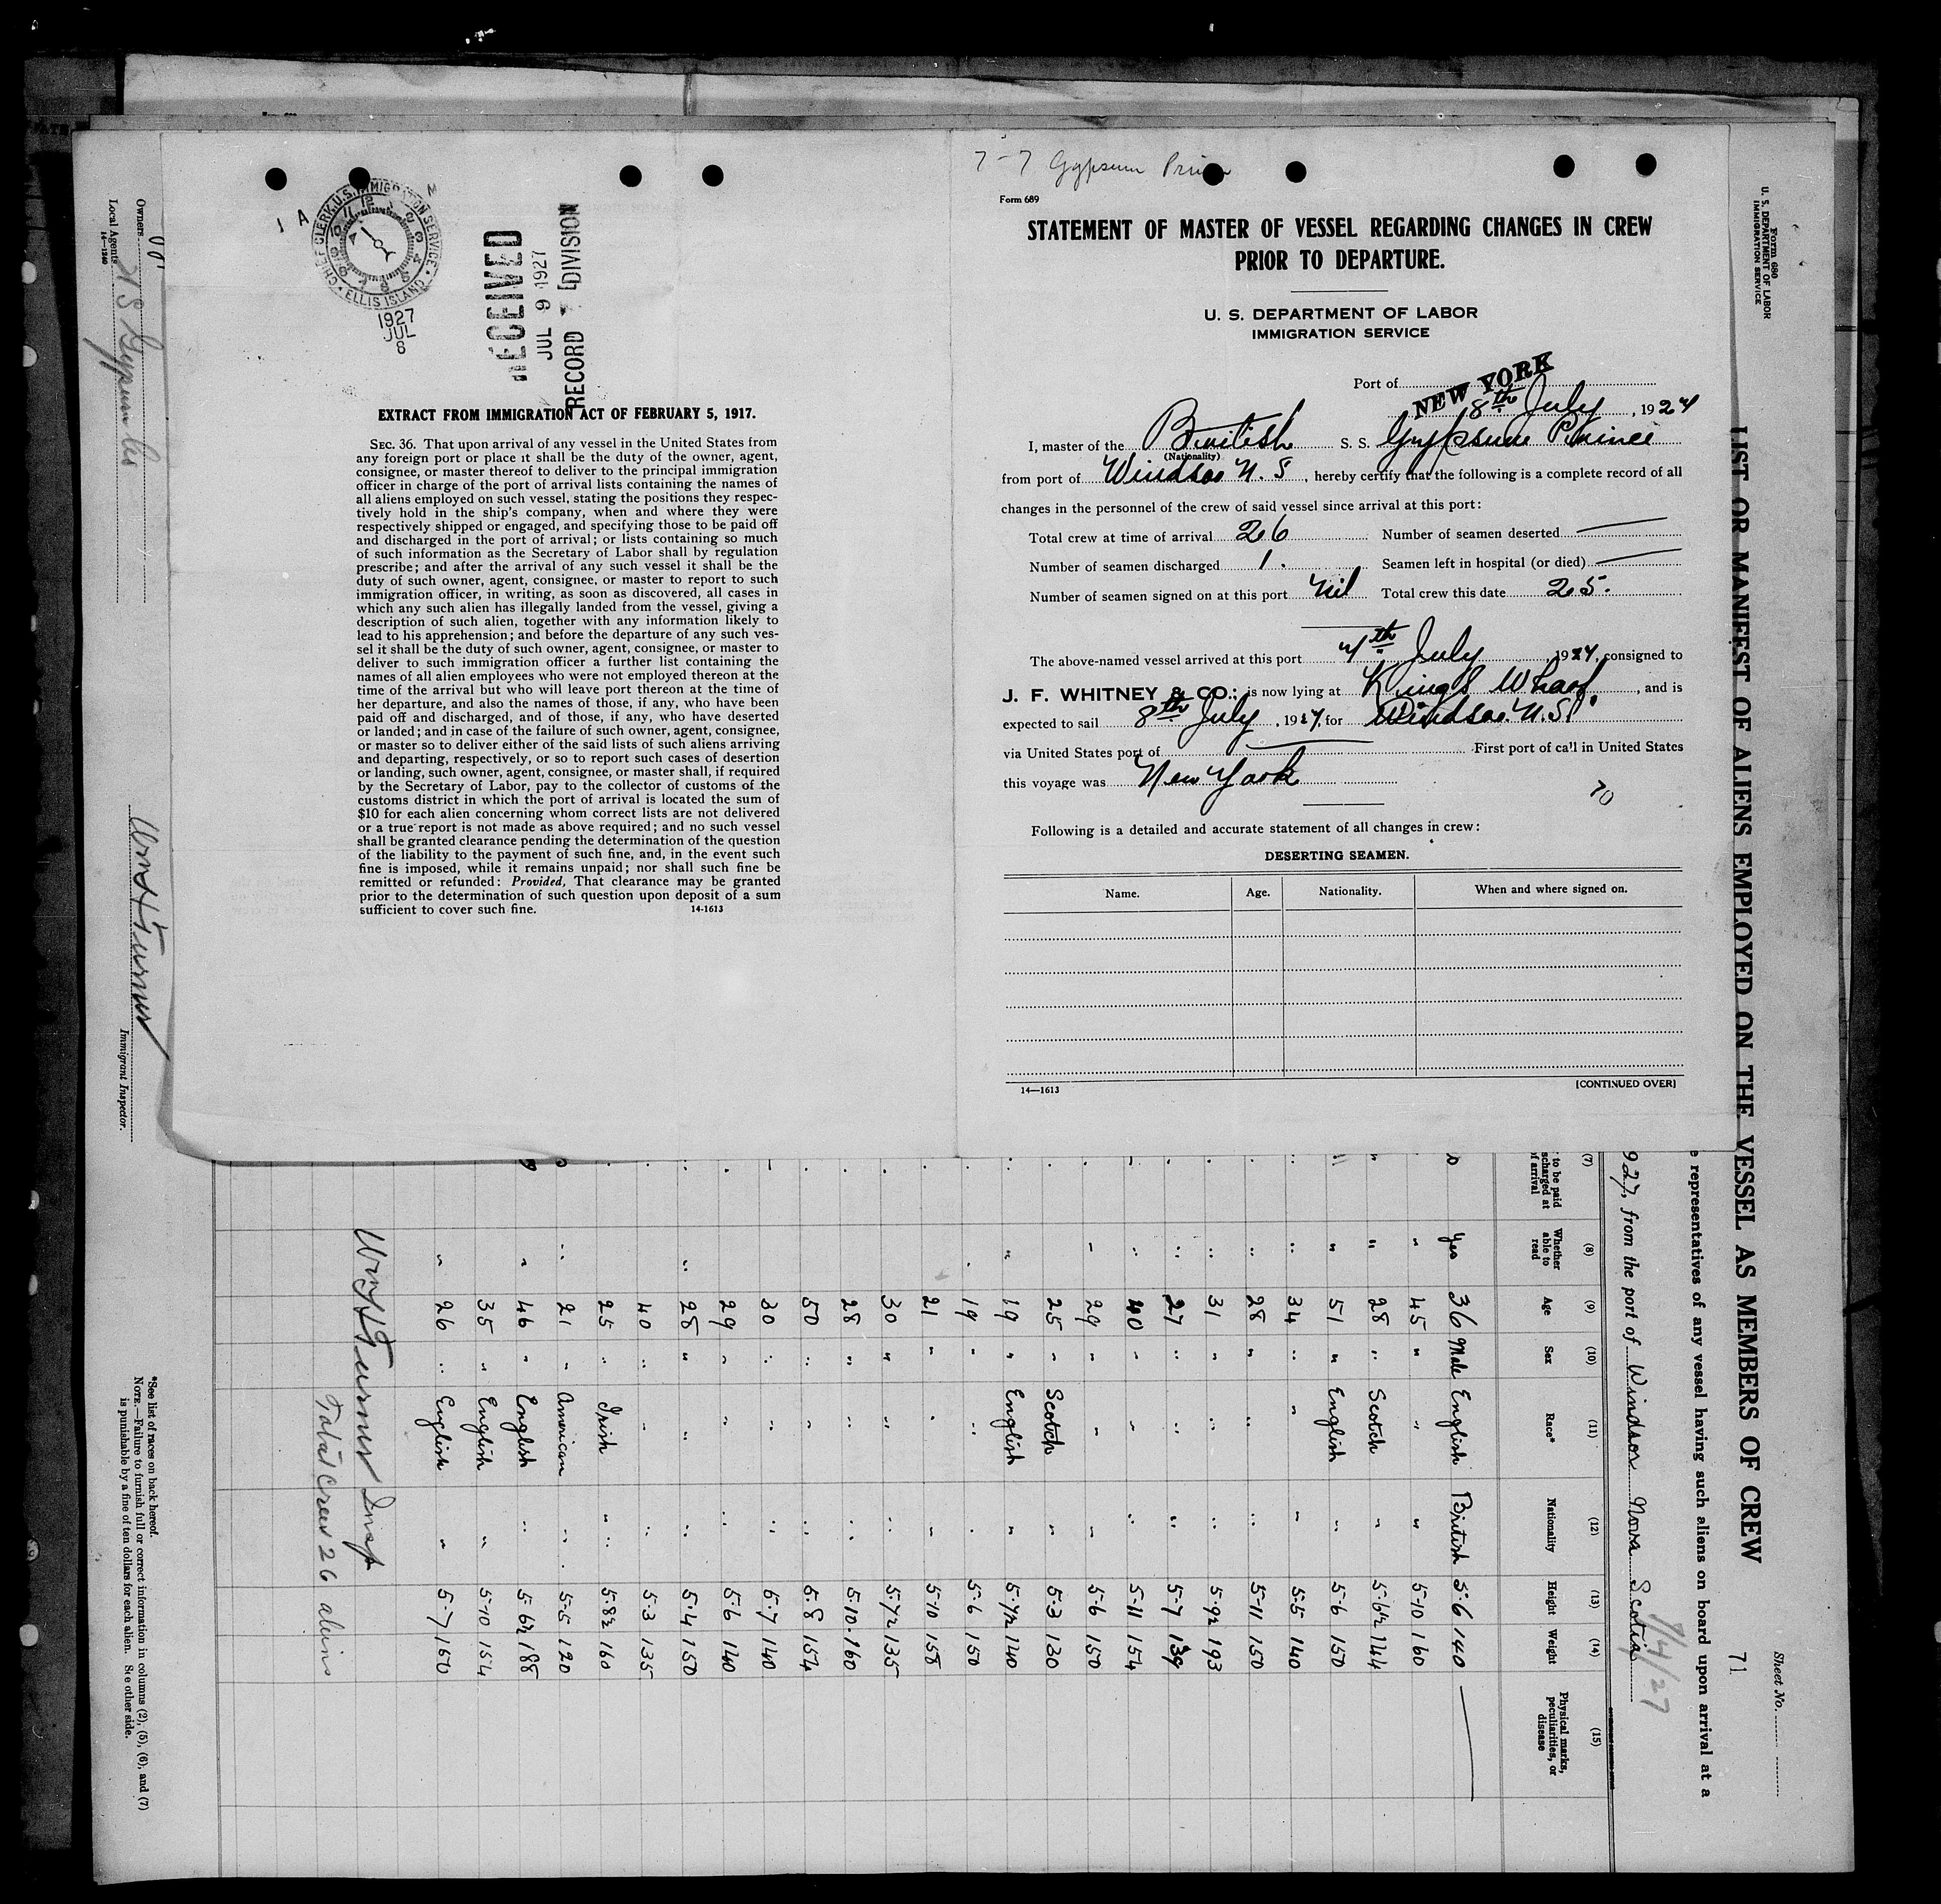 7-7 Gypsum Prin
Form 689
STATEMENT OF MASTER OF VESSEL REGARDING CHANGES IN CREW
PRIOR TO DEPARTURE.
U. S. DEPARTMENT OF LABOR
IMMIGRATION SERVICE
Port of NEW YORK
8th July, 1927
I, master of the British S. S. Gypsum Prince
(Nationality)
from port of Windsor N. S, hereby certify that the following is a complete record of all
changes in the personnel of the crew of said vessel since arrival at this port:
Total crew at time of arrival 26 Number of seamen deserted
Number of seamen discharged 1. Seamen left in hospital (or died)
Number of seamen signed on at this port Nil Total crew this date 25.
The above-named vessel arrived at this port 4th July, 1927, consigned to
J. F. WHITNEY & CO.; is now lying at King's Wharf, and is
expected to sail 8th July, 1927, for Windsor. N.S.
via United States port of First port of call in United States
this voyage was New York
70
Following is a detailed and accurate statement of all changes in crew:
DESERTING SEAMEN.
Name. Age. Nationality. When and where signed on.
14—1613 [CONTINUED OVER]
1 A
2
CHIEF CLERK, U.S. IMMIGRATION SERVICE
ELLIS ISLAND
1927
JUL
8
RECEIVED
JUL 9 1927
RECORD DIVISION
EXTRACT FROM IMMIGRATION ACT OF FEBRUARY 5, 1917.
SEC. 36. That upon arrival of any vessel in the United States from
any foreign port or place it shall be the duty of the owner, agent,
consignee, or master thereof to deliver to the principal immigration
officer in charge of the port of arrival lists containing the names of
all aliens employed on such vessel, stating the positions they respec-
tively hold in the ship's company, when and where they were
respectively shipped or engaged, and specifying those to be paid off
and discharged in the port of arrival; or lists containing so much
of such information as the Secretary of Labor shall by regulation
prescribe; and after the arrival of any such vessel it shall be the
duty of such owner, agent, consignee, or master to report to such
immigration officer, in writing, as soon as discovered, all cases in
which any such alien has illegally landed from the vessel, giving a
description of such alien, together with any information likely to
lead to his apprehension; and before the departure of any such ves-
sel it shall be the duty of such owner, agent, consignee, or master to
deliver to such immigration officer a further list containing the
names of all alien employees who were not employed thereon at the
time of the arrival but who will leave port thereon at the time of
her departure, and also the names of those, if any, who have been
paid off and discharged, and of those, if any, who have deserted
or landed; and in case of the failure of such owner, agent, consignee,
or master so to deliver either of the said lists of such aliens arriving
and departing, respectively, or so to report such cases of desertion
or landing, such owner, agent, consignee, or master shall, if required
by the Secretary of Labor, pay to the collector of customs of the
customs district in which the port of arrival is located the sum of
$10 for each alien concerning whom correct lists are not delivered
or a true report is not made as above required; and no such vessel
shall be granted clearance pending the determination of the question
of the liability to the payment of such fine, and, in the event such
fine is imposed, while it remains unpaid; nor shall such fine be
remitted or refunded: Provided, That clearance may be granted
prior to the determination of such question upon deposit of a sum
sufficient to cover such fine. 14-1613
Form 680
U. S. DEPARTMENT OF LABOR
IMMIGRATION SERVICE
Sheet No.
LIST OR MANIFEST OF ALIENS EMPLOYED ON THE VESSEL AS MEMBERS OF CREW 71
representatives of any vessel having such aliens on board upon arrival at a
927, from the port of Windsor Nova Scotia
7/4/27
(7) (8) (9) (10) (11) (12) (13) (14) (15)
to be paid
scharged at
of arrival
Whether able to read
Age
Sex
Race*
Nationality
Height
Weight
Physical marks, peculiarities, or disease
yes 36 Male English British 5.6 140
" 45 " " " 5-10 160
" 28 " Scotch " 5.6½ 144
" 51 " English " 5-6 150
" 34 " " " 5.5 140
" 28 " " " 5-11 150
" 31 " " " 5.9½ 193
" 27 " " " 5-7 139
" 40 " " " 5-11 154
" 29 " " " 5-6 150
25 " Scotch " 5.3 130
" 19 " English " 5.7½ 140
" 19 " " " 5-6 150
21 " " " 5-10 158
30 " " " 5.7½ 135
28 " " " 5.10 160
50 " " " 5.8 154
30 " " " 5.7 140
29 " " " 5.6 140
" 28 " " " 5.4 150
40 " " " 5.3 135
25 " Irish " 5.8½ 160
" 21 " American " 5-5 120
" 46 " English " 5.6½ 188
35 " English " 5-10 154
" 26 " English " 5-7 150
Wm H Turner Insp
Total Crew 26 aliens
*See list of races on back hereof.
NOTE.—Failure to furnish full or correct information in columns (2), (5), (6), and (7)
is punishable by a fine of ten dollars for each alien. See other side.
Owners
Local Agents
14—1240
Wm H Turner
Immigrant Inspector.